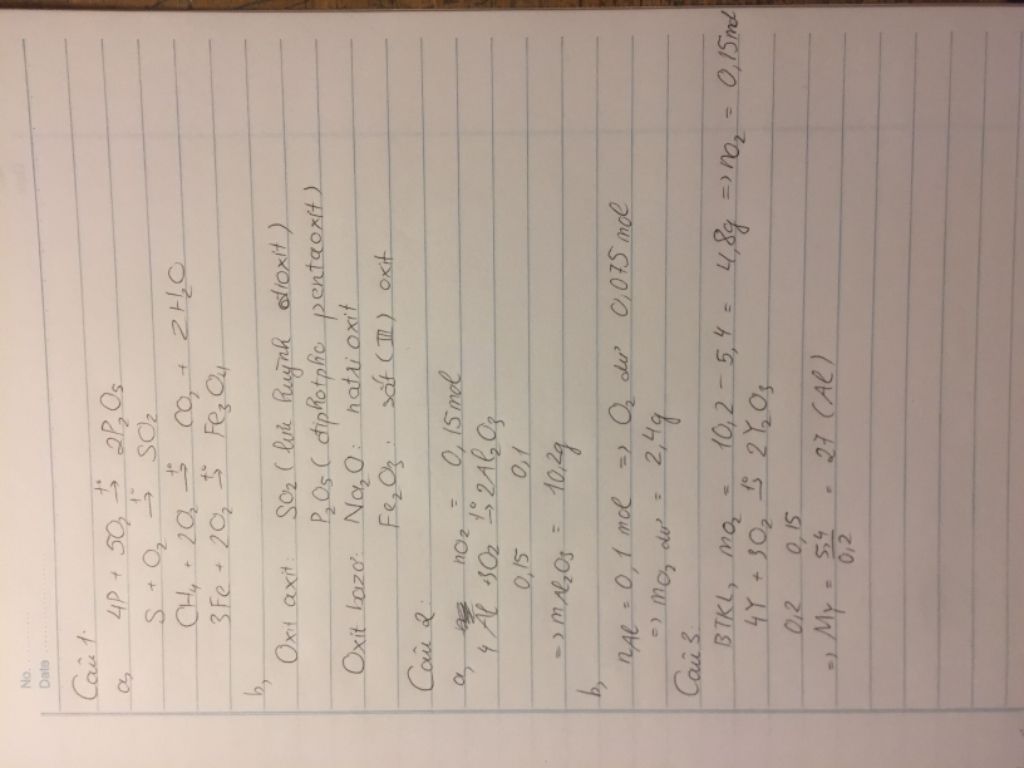 No.
Date
Câu 1:
a, 4P + 5O₂ →t° 2P₂O₅
S + O₂ →t° SO₂
CH₄ + 2O₂ →t° CO₂ + 2H₂O
3Fe + 2O₂ →t° Fe₃O₄
b,
Oxit axit: SO₂ (lưu huỳnh đioxit)
P₂O₅ (điphotpho pentaoxit)
Oxit bazơ: Na₂O: natri oxit
Fe₂O₃: sắt (III) oxit
Câu 2:
a, nO₂ = 0,15mol
4Al 3O₂ →t° 2Al₂O₃
0,15 0,1
=> mAl₂O₃ = 10,2g
b,
nAl = 0,1 mol => O₂ dư 0,075 mol
=> mO₂ dư = 2,4g
Câu 3:
BTKL, mO₂ = 10,2 - 5,4 = 4,8g => nO₂ = 0,15mol
4Y + 3O₂ →t° 2Y₂O₃
0,2 0,15
=> M_Y = 5,4/0,2 = 27 (Al)